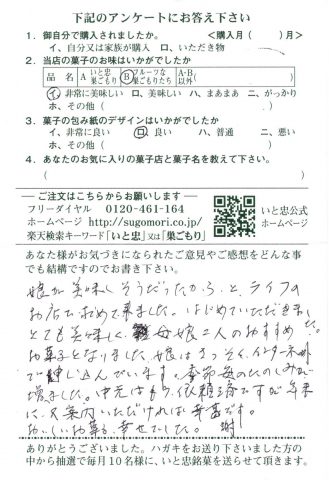 下記のアンケートにお答え下さい
1. 御自分で購入されましたか。 <購入月(　　)月>
イ、自分又は家族が購入 ロ、いただき物
2. 当店の菓子のお味はいかがでしたか
品 名 A いと忠巣ごもり B フルーツな巣ごもりたち A・B以外(　　)
イ、非常に美味しい ロ、美味しい ハ、まあまあ ニ、がっかり
ホ、その他(　　)
3. 菓子の包み紙のデザインはいかがでしたか
イ、非常に良い ロ、良い ハ、普通 ニ、悪い
ホ、その他(　　)
4. あなたのお気に入りの菓子店と菓子名を教えて下さい。
(　　)
ご注文はこちらからお願いします
フリーダイヤル 0120-461-164
ホームページ http://sugomori.co.jp/
楽天検索キーワード「いと忠」又は「巣ごもり」
いと忠公式
ホームページ
あなた様がお気づきになられたご意見やご感想をどんな事
でも結構ですのでお書き下さい。
娘が美味しそうだったから、と、ライフの
お店で求めて来ました。はじめていただきました。
とても美味しく、母娘二人のおすすめ
お菓子となりました。娘はさっそく、インターネット
で申し込んでいます。季節毎のたのしみが
増えました。中元はもう依頼済ですが年末
に、又案内いただければ幸甚です。
おいしいお菓子、幸せでした。 謝
ありがとうございました。ハガキをお送り下さいました方の
中から抽選で毎月10名様に、いと忠銘菓を送らせて頂きます。